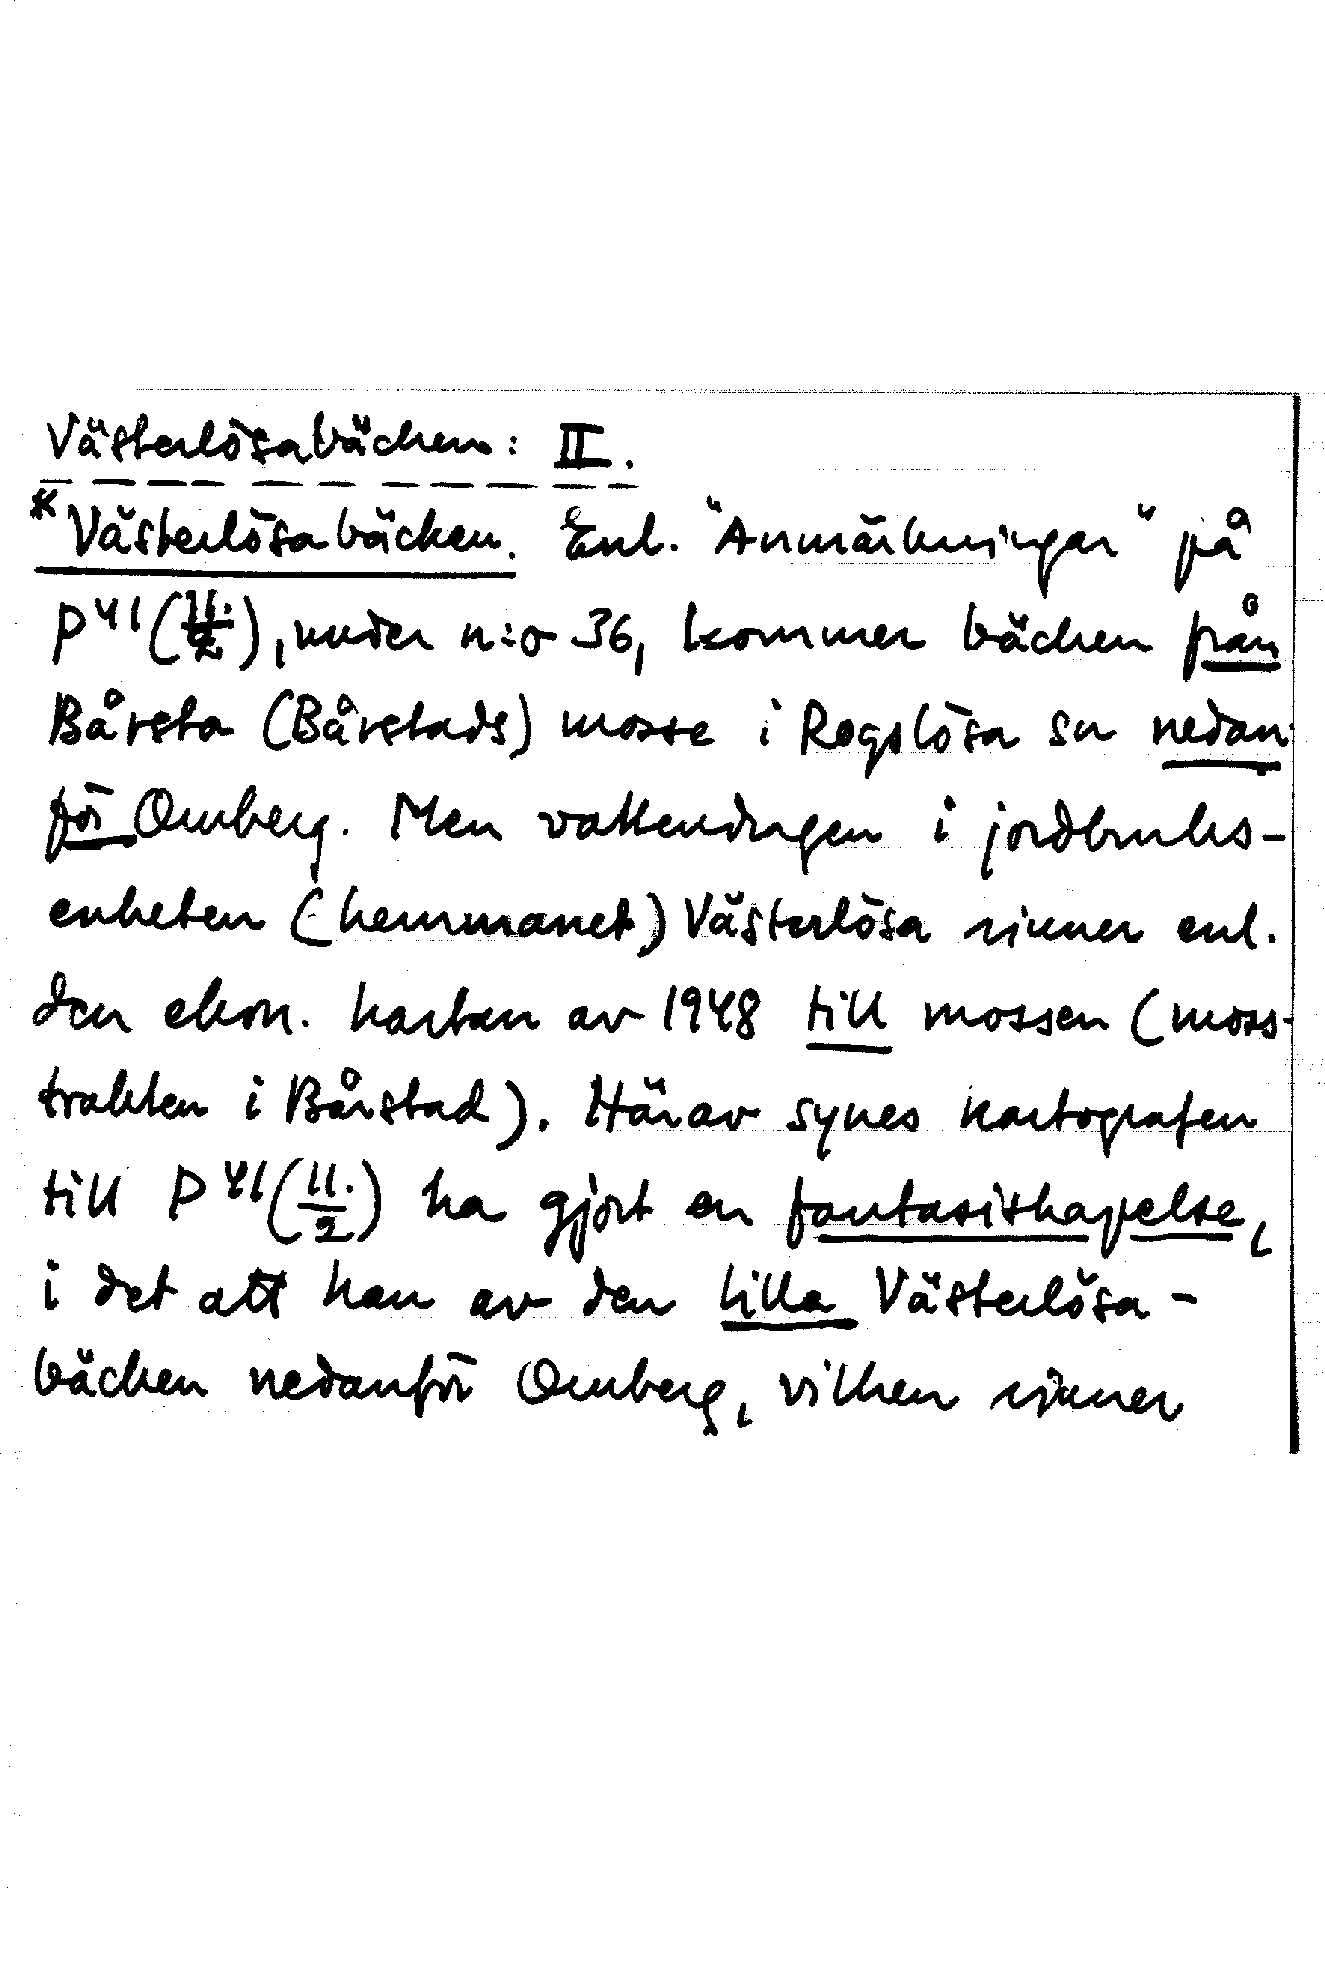 Västerlösabäcken: II.
*Västerlösabäcken. Enl. "Anmärkningar" på
P41(11./2), under n:o 36, kommer bäcken från
Bårsta (Bårstads) mosse i Rogslösa sn nedan-
för Omberg. Men vattendragen i jordbruks-
enheten (hemmanet) Västerlösa rinner enl.
den ekon. kartan av 1948 till mossen (moss-
trakten i Bårstad). Härav synes kartografen
till P41(11./2) ha gjort en fantasiskapelse,
i det att han av den lilla Västerlösa-
bäcken nedanför Omberg, vilken rinner